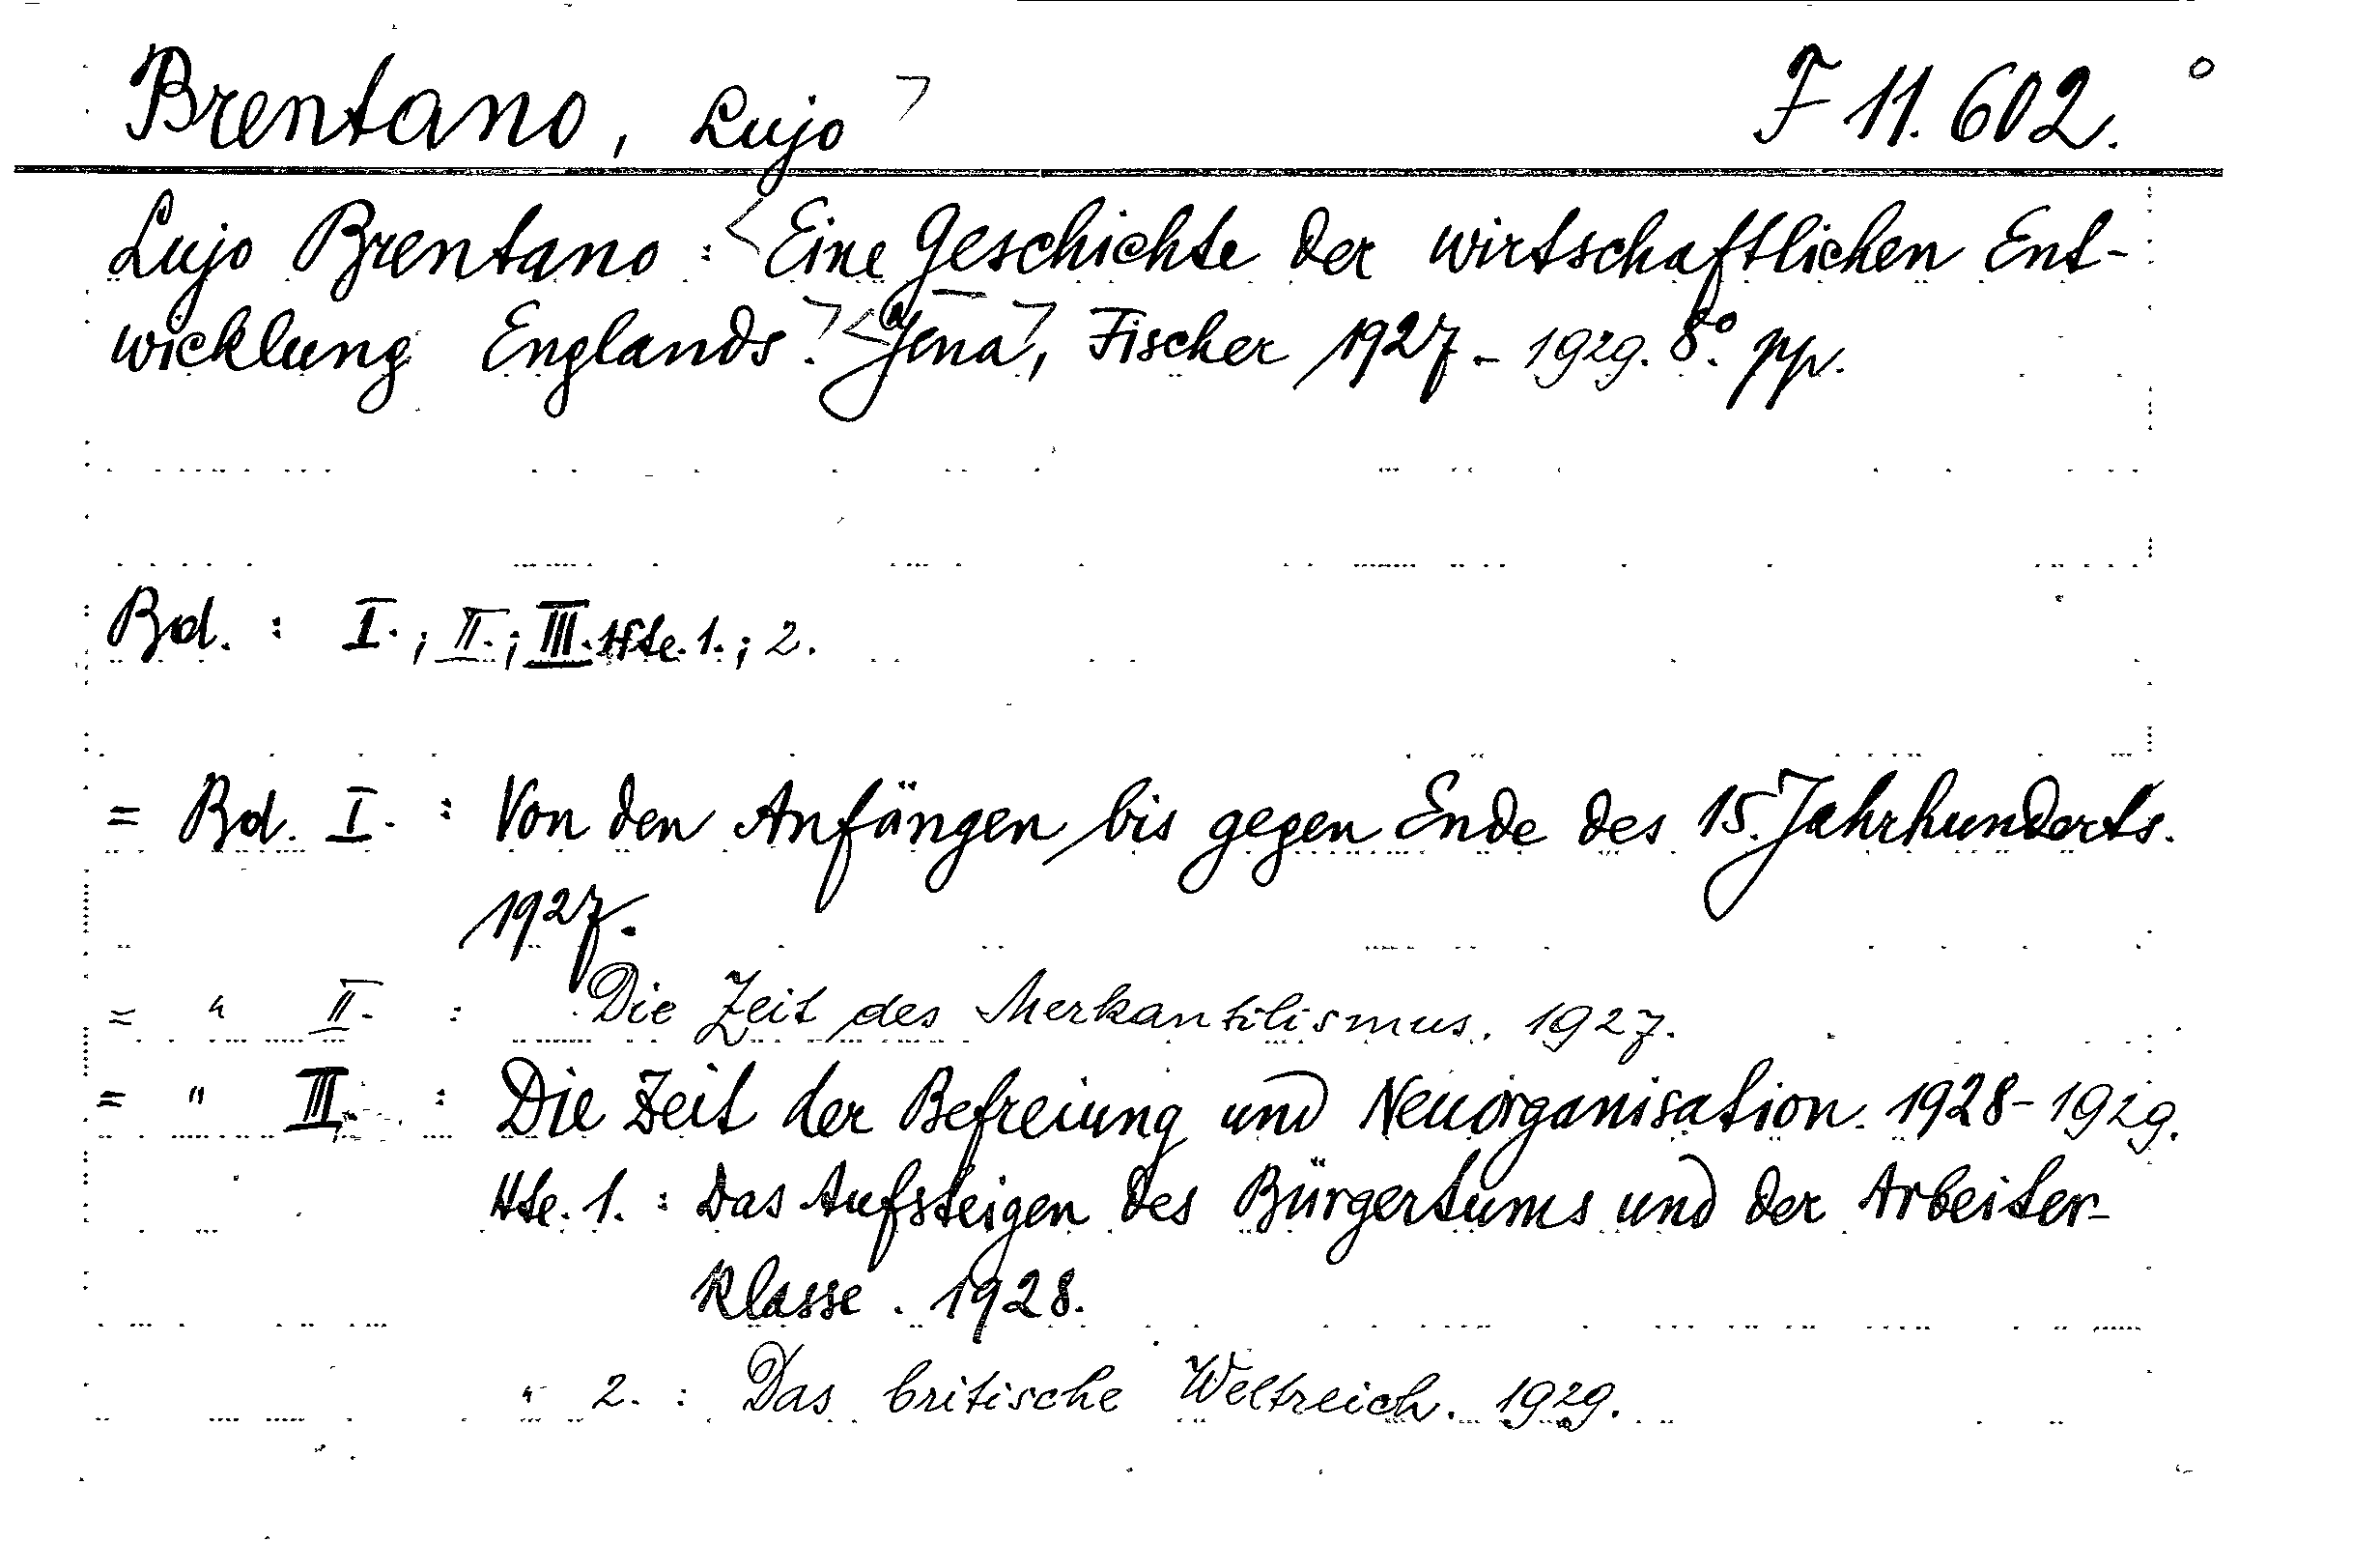 Brentano, Lujo F 11.602.
Lujo Brentano: Eine Geschichte der wirtschaftlichen Ent-
wicklung Englands. Jena, Fischer 1927-1929. 8°. pp.
Bd. : I.; II.; III. Hfte. 1.; 2.
= Bd. I. : Von den Anfängen bis gegen Ende des 15. Jahrhunderts.
1927.
= " II. : Die Zeit des Merkantilismus. 1927.
= " III. : Die Zeit der Befreiung und Neuorganisation. 1928-1929.
Hfte. 1. : Das Aufsteigen des Bürgertums und der Arbeiter-
klasse. 1928.
" 2. : Das britische Weltreich. 1929.